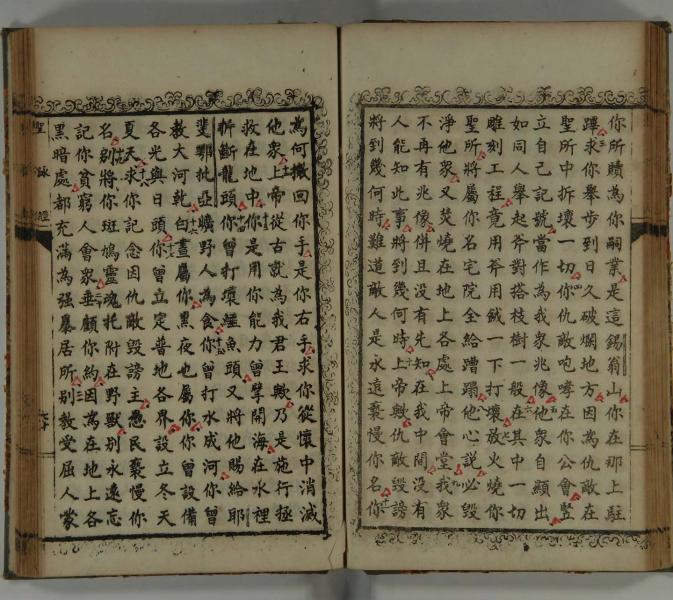 你所贖為你嗣業是這錫翁山你在那上駐
蹕求你舉步到日久破爛地方因為仇敵在
聖所中拆壞一切你仇敵咆哮在你公會豎
立自己記號當作為我眾兆像他眾自顯出
如同人舉起斧對搭枝樹一般在其中一切
雕刻工程竟用斧用鉞一下打壞放火燒你
聖所將屬你名宅院全給蹧蹋他心說必毀
淨他眾又焚燒在地上各處上帝會堂我眾
不再有兆像併且没有先知在我中間没有
人能知此事將到幾何時上帝歟仇敵毀謗
將到幾何時難道敵人是永遠褻慢你名你
為何撤回你手是你右手求你從懷中消滅
他眾上帝從古就為我君王歟乃是施行拯
救在地中你是用你能力曾擘開海在水裡
折斷龍頭你曾打壞鱷魚頭又將他賜給耶
斐鄂批亞曠野人為食你曾打水成河你曾
教大河乾白晝屬你黑夜也屬你你曾設備
各光與日頭你曾立定普地各界設立冬天
夏天求你記念因仇敵毀謗主愚民褻慢你
名別將你斑鳩靈魂托附在野獸別永遠忘
記你貧窮人會眾垂顧你約因為在地上各
黑暗處都充滿為强暴居所別教受屈人蒙
聖詠經